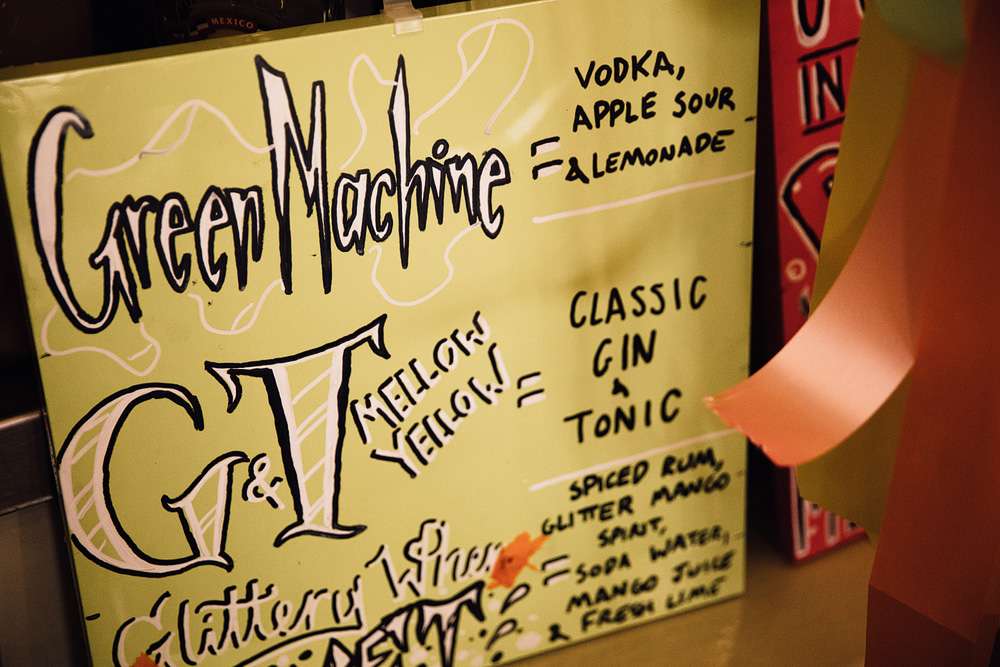 MEXICO
Green Machine
=
VODKA,
APPLE SOUR
& LEMONADE
G&T
MELLOW
YELLOW
=
CLASSIC
GIN
&
TONIC
Glittery
=
SPICED RUM,
GLITTER MANGO
SPIRIT,
SODA WATER,
MANGO JUICE
& FRESH LIME
IN